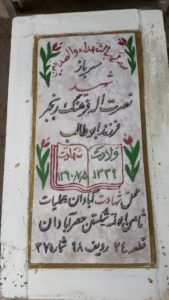 سرباز
شهید
نصرت اله فرهنگ رنجبر
فرزند ابوطالب
ولادت شهادت
۱۳۳۹
محل شهادت آبادان عملیات
ثامن شکستن حصر آبادان
قطعه ۲۴ ردیف ۶۸ شماره ۳۷